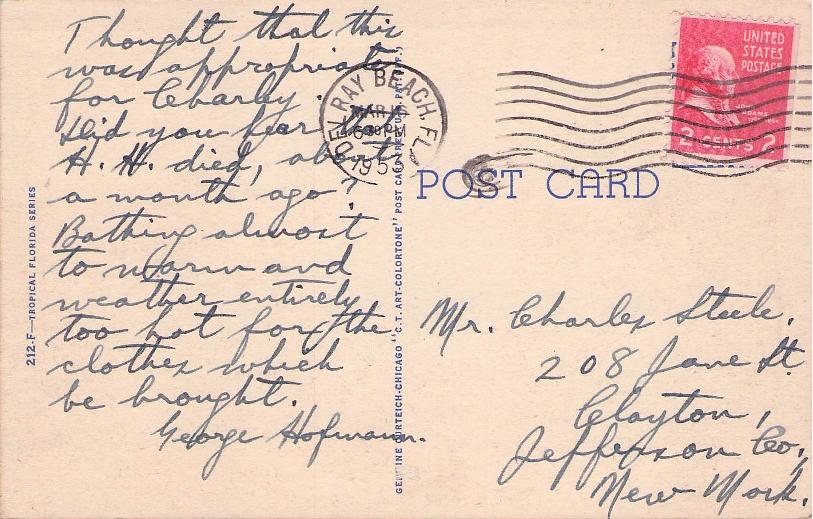 Thought that this
was appropriate
for Charley.
Did you hear that
H. H. died, about
a month ago?
Bathing almost
to warm and
weather entirely
too hot for the
clothes which
be brought.
George Hofmann.
212-F—TROPICAL FLORIDA SERIES
GENUINE CURTEICH-CHICAGO "C.T. ART-COLORTONE" POST CARD
DELRAY BEACH, FLA.
MAR
PM
UNITED
STATES
POSTAGE
JOHN
ADAMS
2 CENTS 2
POST CARD
Mr. Charles Steele.
208 Jane St.
Clayton,
Jefferson Co.,
New York.